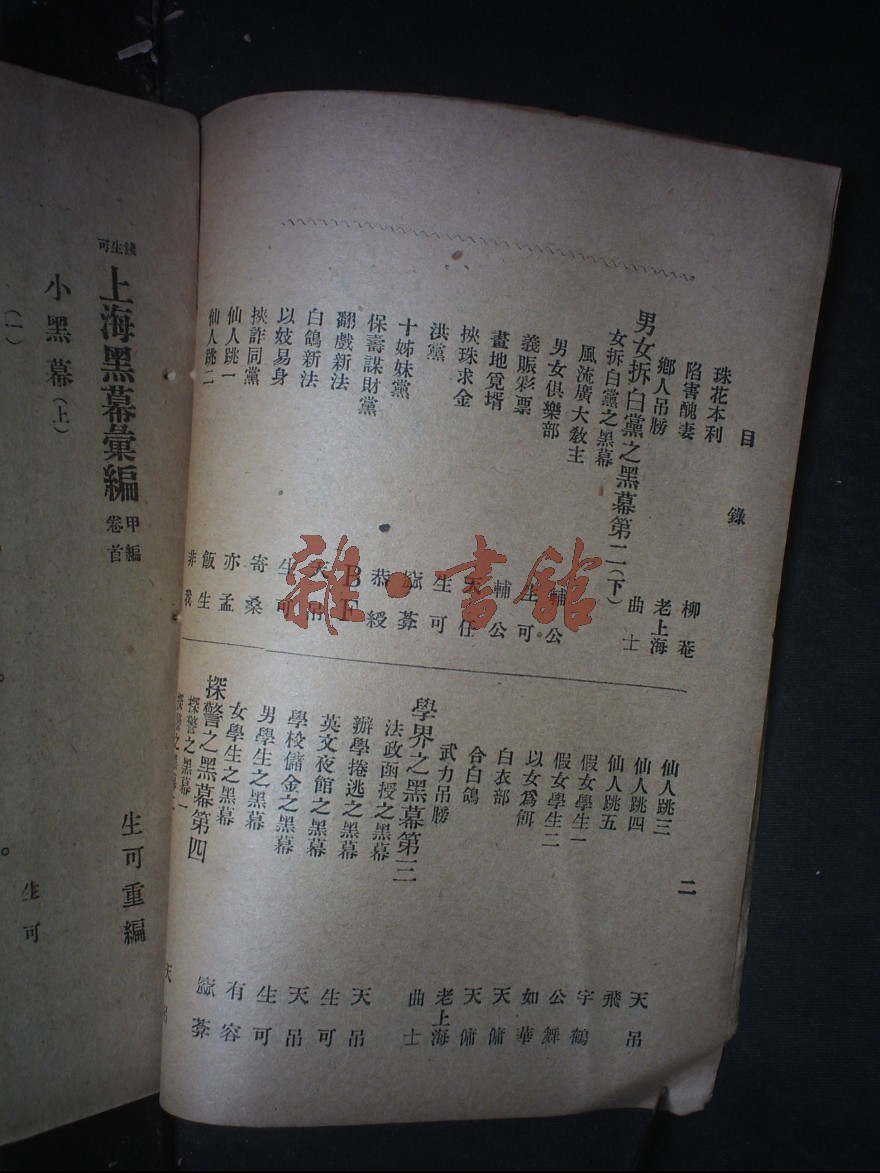 目錄
珠花本利 柳菴
陷害醜妻 老上海
鄉人吊勝 曲士
男女拆白黨之黑幕第二(下)
女拆白黨之黑幕
風流廣大教主 輔公
男女俱樂部 生可
義賑彩票 輔公
畫地覓壻 天任
挾珠求金 生可
洪黨
十姊妹黨 恭綬
保壽謀財黨
翻戲新法 天吊
白鴿新法 生可
以妓易身 寄桑
挾詐同黨 亦孟
仙人跳一 飯生
仙人跳二 非我
二
仙人跳三 天吊
仙人跳四 飛
仙人跳五 宇鶴
假女學生一
假女學生二 如華
以女爲餌 天傭
白衣部 天傭
合白鴿 老上海
武力吊勝 曲士
學界之黑幕第三
法政函授之黑幕 天吊
辦學捲逃之黑幕 生可
英文夜館之黑幕 天吊
學校儲金之黑幕 生可
男學生之黑幕 有容
女學生之黑幕
探警之黑幕第四
探警之黑幕一
錢生可
上海黑幕彙編 甲編卷首
生可重編
小黑幕(上)
(一) 生可
雜·書舘